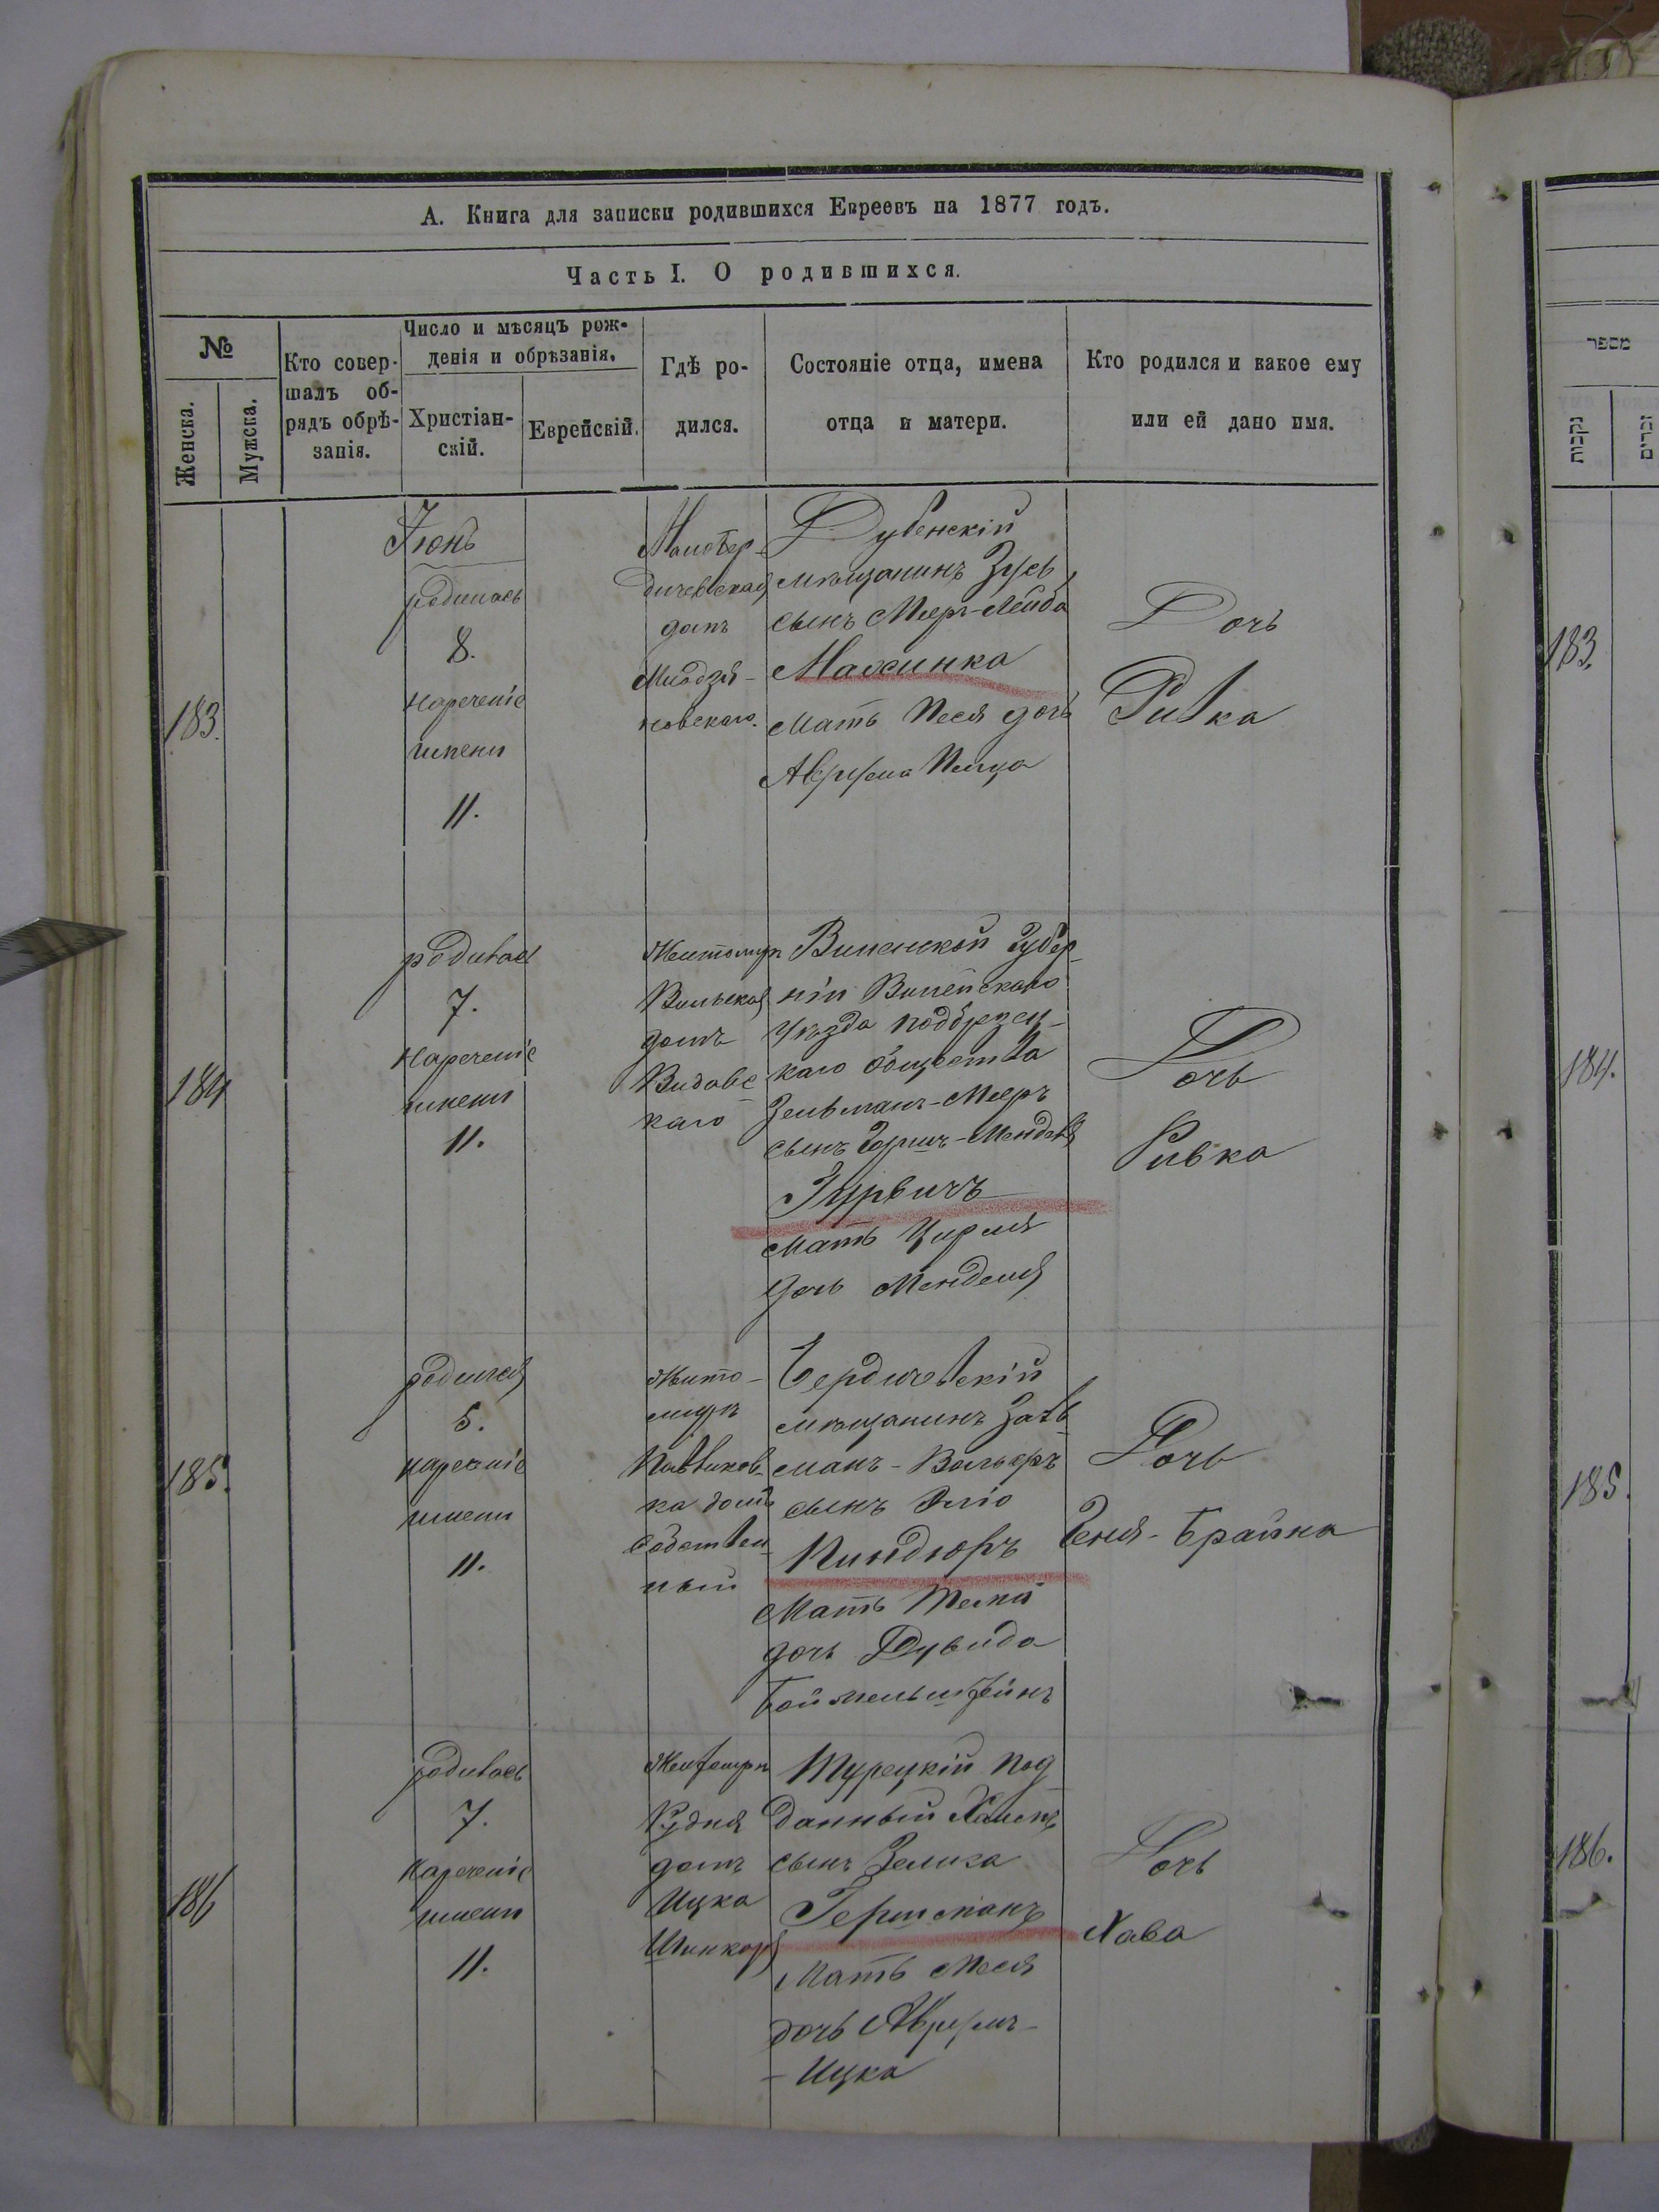 А. Книга для записки родившихся Евреевъ на 1877 годъ.
Часть I. О родившихся.
№
Женска.
Мужска.
Кто совер-
шалъ об-
рядъ обрѣ-
занія.
Число и мѣсяцъ рож-
денія и обрѣзанія.
Христіан-
скій.
Еврейскій.
Гдѣ ро-
дился.
Состояніе отца, имена
отца и матери.
Кто родился и какое ему
или ей дано имя.
183.
Іюнь
родилась
8.
Нареченіе
имени
11.
дичевская
домъ
новскаго.
Дубенскій
мѣщанинъ Зусь
сынъ Мееръ-Лейба
Махинка
мать Песя дочь
Аврума
Дочь
Ривка
184
родилась
7.
Нареченіе
имени
11.
Житомиръ
Вильская
домъ
Видавс
каго
Виленской Губер-
ніи Вилейскаго
Уѣзда подбрезец-
каго общества
Зельманъ-Мееръ
сынъ Гершъ-Менделя
Гурвичъ
мать Цирля
дочь Менделя
Дочь
Ривка
185.
5.
нареченіе
имени
11.
Жито-
миръ
ка домъ
собствен-
ный
Бердичевскій
мѣщанинъ Заль-
манъ-Волькеръ
сынъ Эліо
Пиндюръ
Мать
дочь Дувида
Боймельштейнъ
Дочь
Геня-Брайна
186
родилась
7.
Нареченіе
имени
11.
Житомиръ
Рудня
домъ
Ицка
Шинкаря
Турецкій под
данный
сынъ Зелика
Гершманъ
Мать Меся
дочь Аврумъ-
-Ицка
Дочь
Хава
מספר
נקבות
זכרים
183.
184.
185.
186.